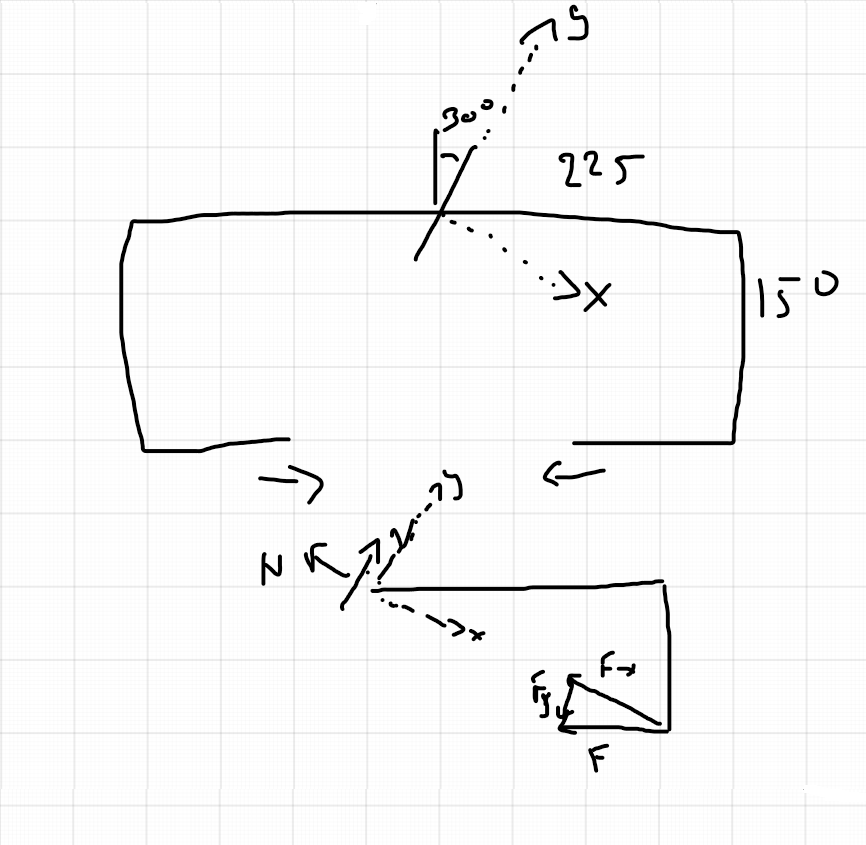 y
30°
225
X
150
y
N
V
x
Fx
Fy
F